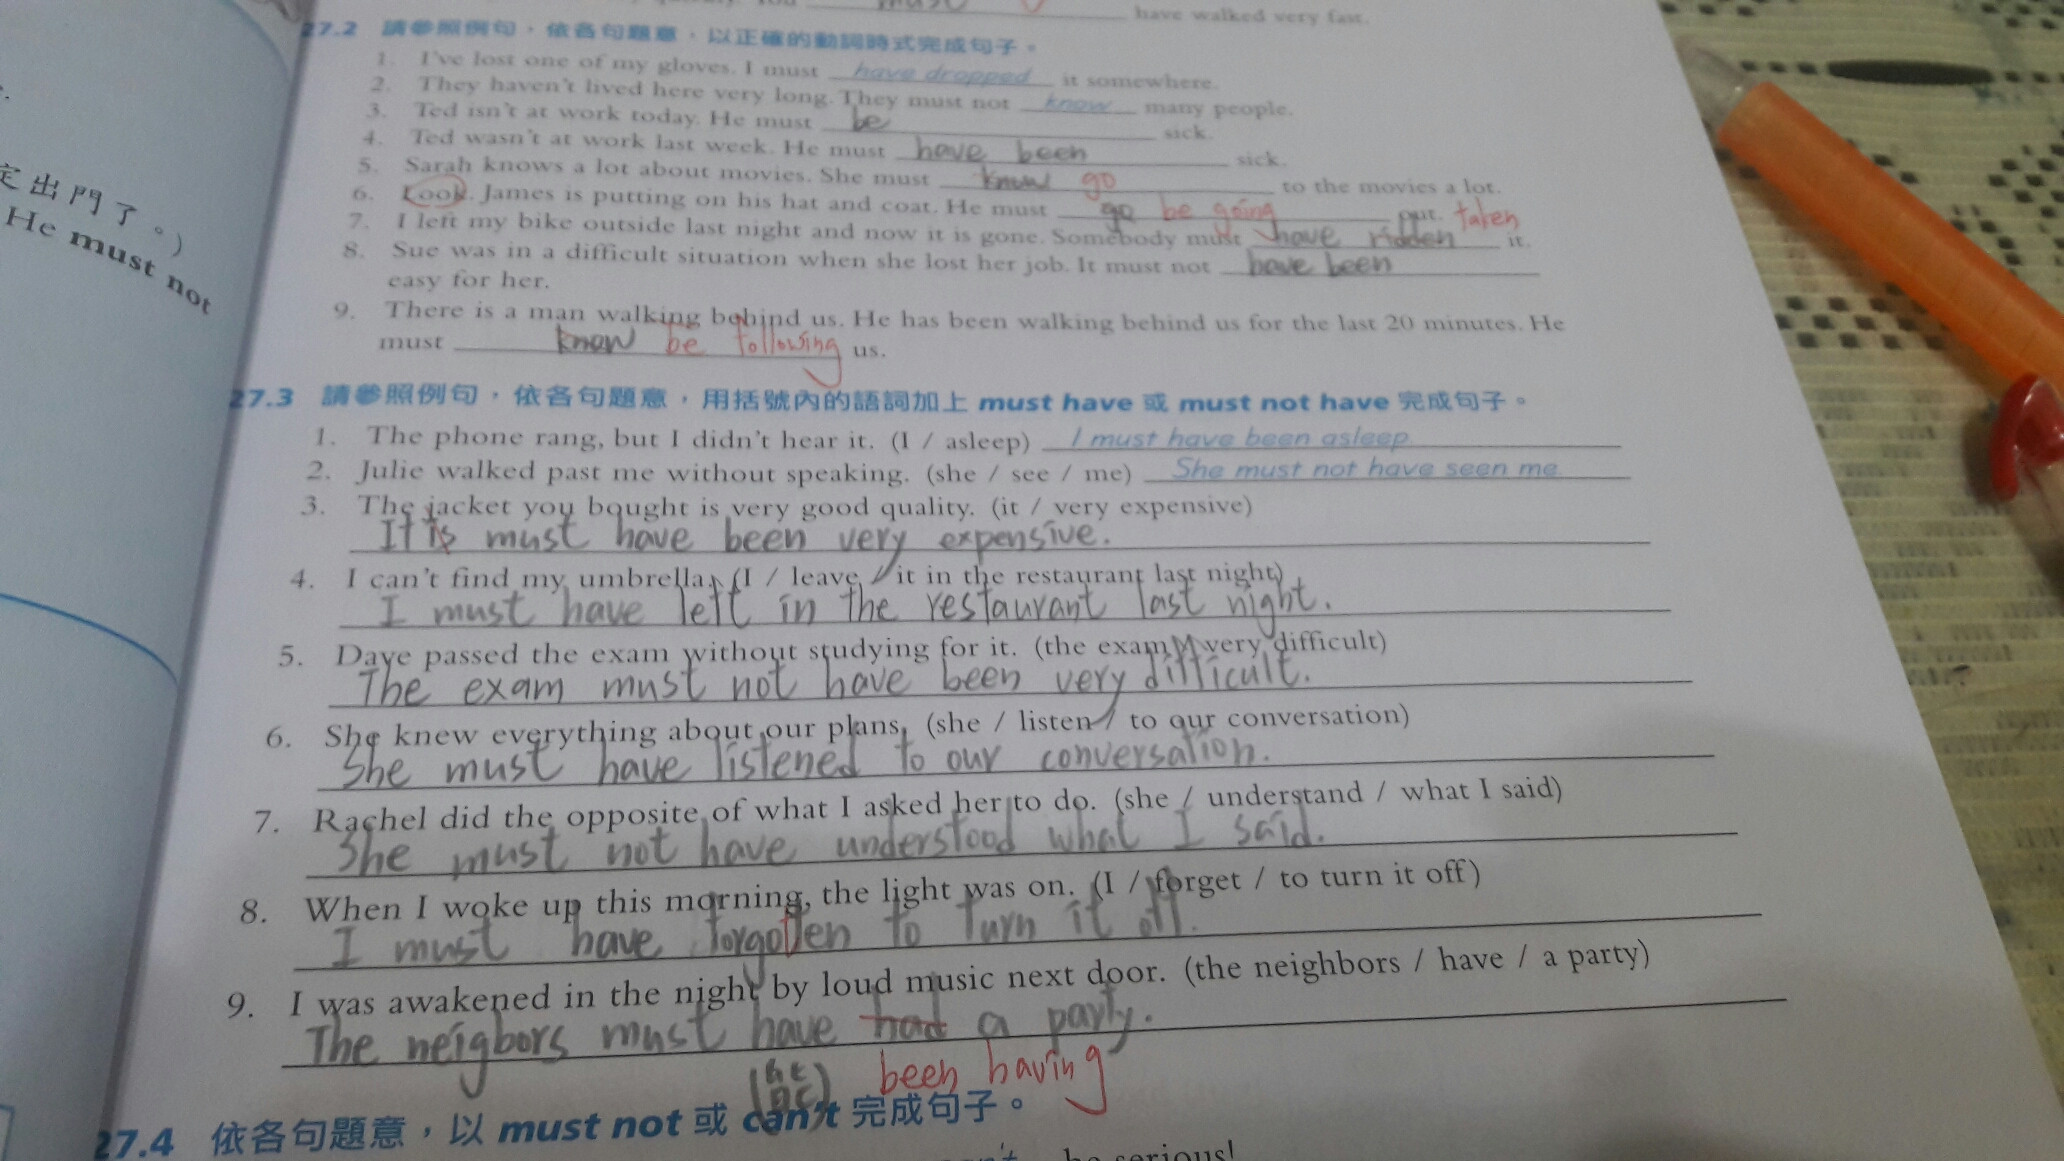 must
have walked very fast.
定出門了。)
He must not
27.2 請參照例句，依各句題意，以正確的動詞時式完成句子。
1. I've lost one of my gloves. I must have dropped it somewhere.
2. They haven't lived here very long. They must not know many people.
3. Ted isn't at work today. He must be sick.
4. Ted wasn't at work last week. He must have been sick.
5. Sarah knows a lot about movies. She must know go to the movies a lot.
6. Look. James is putting on his hat and coat. He must go be going out. taken
7. I left my bike outside last night and now it is gone. Somebody must have ridden it.
8. Sue was in a difficult situation when she lost her job. It must not have been
easy for her.
9. There is a man walking behind us. He has been walking behind us for the last 20 minutes. He
must know be following us.
27.3 請參照例句，依各句題意，用括號內的語詞加上 must have 或 must not have 完成句子。
1. The phone rang, but I didn't hear it. (I / asleep) I must have been asleep
2. Julie walked past me without speaking. (she / see / me) She must not have seen me
3. The jacket you bought is very good quality. (it / very expensive)
It is must have been very expensive.
4. I can't find my umbrella. (I / leave / it in the restaurant last night)
I must have left in the restaurant last night.
5. Dave passed the exam without studying for it. (the exam / very difficult)
The exam must not have been very difficult.
6. She knew everything about our plans. (she / listen / to our conversation)
She must have listened to our conversation.
7. Rachel did the opposite of what I asked her to do. (she / understand / what I said)
She must not have understood what I said.
8. When I woke up this morning, the light was on. (I / forget / to turn it off)
I must have forgotten to turn it off.
9. I was awakened in the night by loud music next door. (the neighbors / have / a party)
The neigbors must have had a party.
been having
27.4 依各句題意，以 must not 或 can't 完成句子。
be serious!